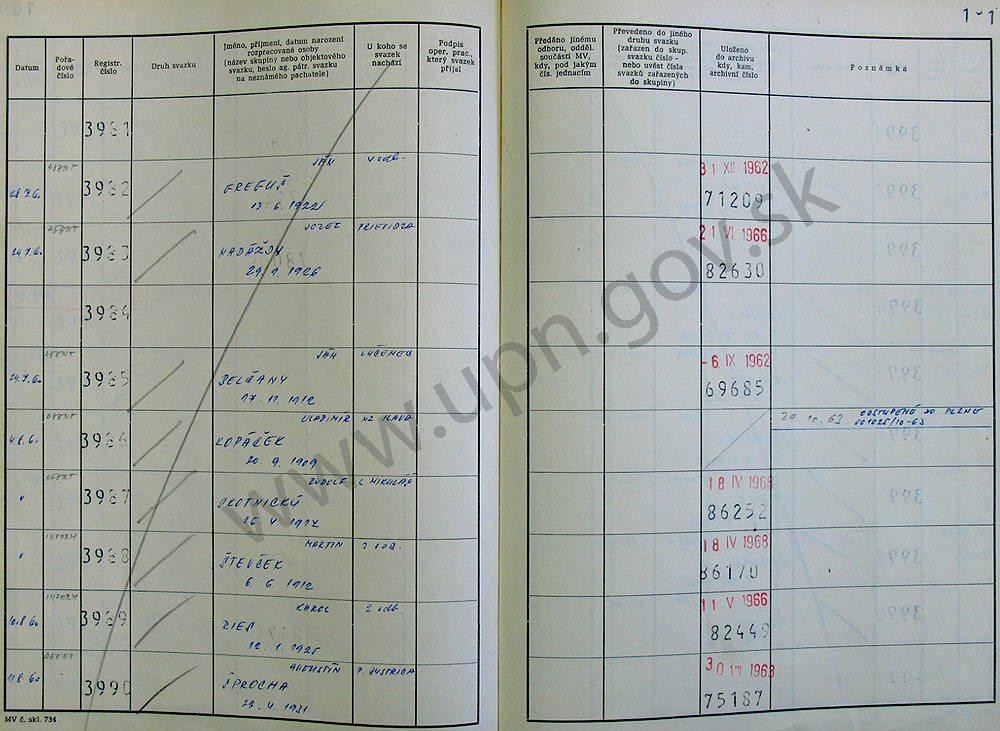 Datum
Pořa-
dové
číslo
Registr.
číslo
Druh svazku
Jméno, příjmení, datum narození
rozpracované osoby
(název skupiny nebo objektového
svazku, heslo ag. pátr. svazku
na neznámého pachatele)
U koho se
svazek
nachází
Podpis
oper. prac.,
který svazek
přijal
Předáno jinému
odboru, odděl.
součásti MV,
kdy, pod jakým
čís. jednacím
Převedeno do jiného
druhu svazku
(zařazen do skup.
svazku číslo -
nebo uvést čísla
svazků zařazených
do skupiny)
Uloženo
do archivu
kdy, kam,
archivní číslo
Poznámka
3981
AGENT JÁN
3982 GREGUŠ 31 XII 1962
17. 6. 1922 71209
AGENT JOZEF PRIEVIDZA
3983 NADÁŽDY 21 VI 1966
29. 9. 1926 82630
3984
AGENT JÁN LUČENEC
3985 SELČANY -6. IX 1962
17. 11. 1912 69685
AGENT VLADIMÍR NZ ILAVA
3986 KOPÁČEK 20. 10. 63 ODSTUPENÉ DO PLZNE
20. 9. 1909 001025/10-63
AGENT RUDOLF L. MIKULÁŠ
3987 SKOTNICKÝ 18 IV 1968
86252
INFORM MARTIN 3 ODB.
3988 ŠTEVČEK 18 IV 1968
6. 6. 1912 86170
INFORM KAROL 2 odb.
10.8.60 3989 RIES 11 V 1966
12. 1. 1925 82449
AGENT AUGUSTÍN P. BYSTRICA
11.8.60 3990 ŠPROCHA 30 VII 1963
22. 4. 1931 75187
MV č. skl. 734
www.upn.gov.sk